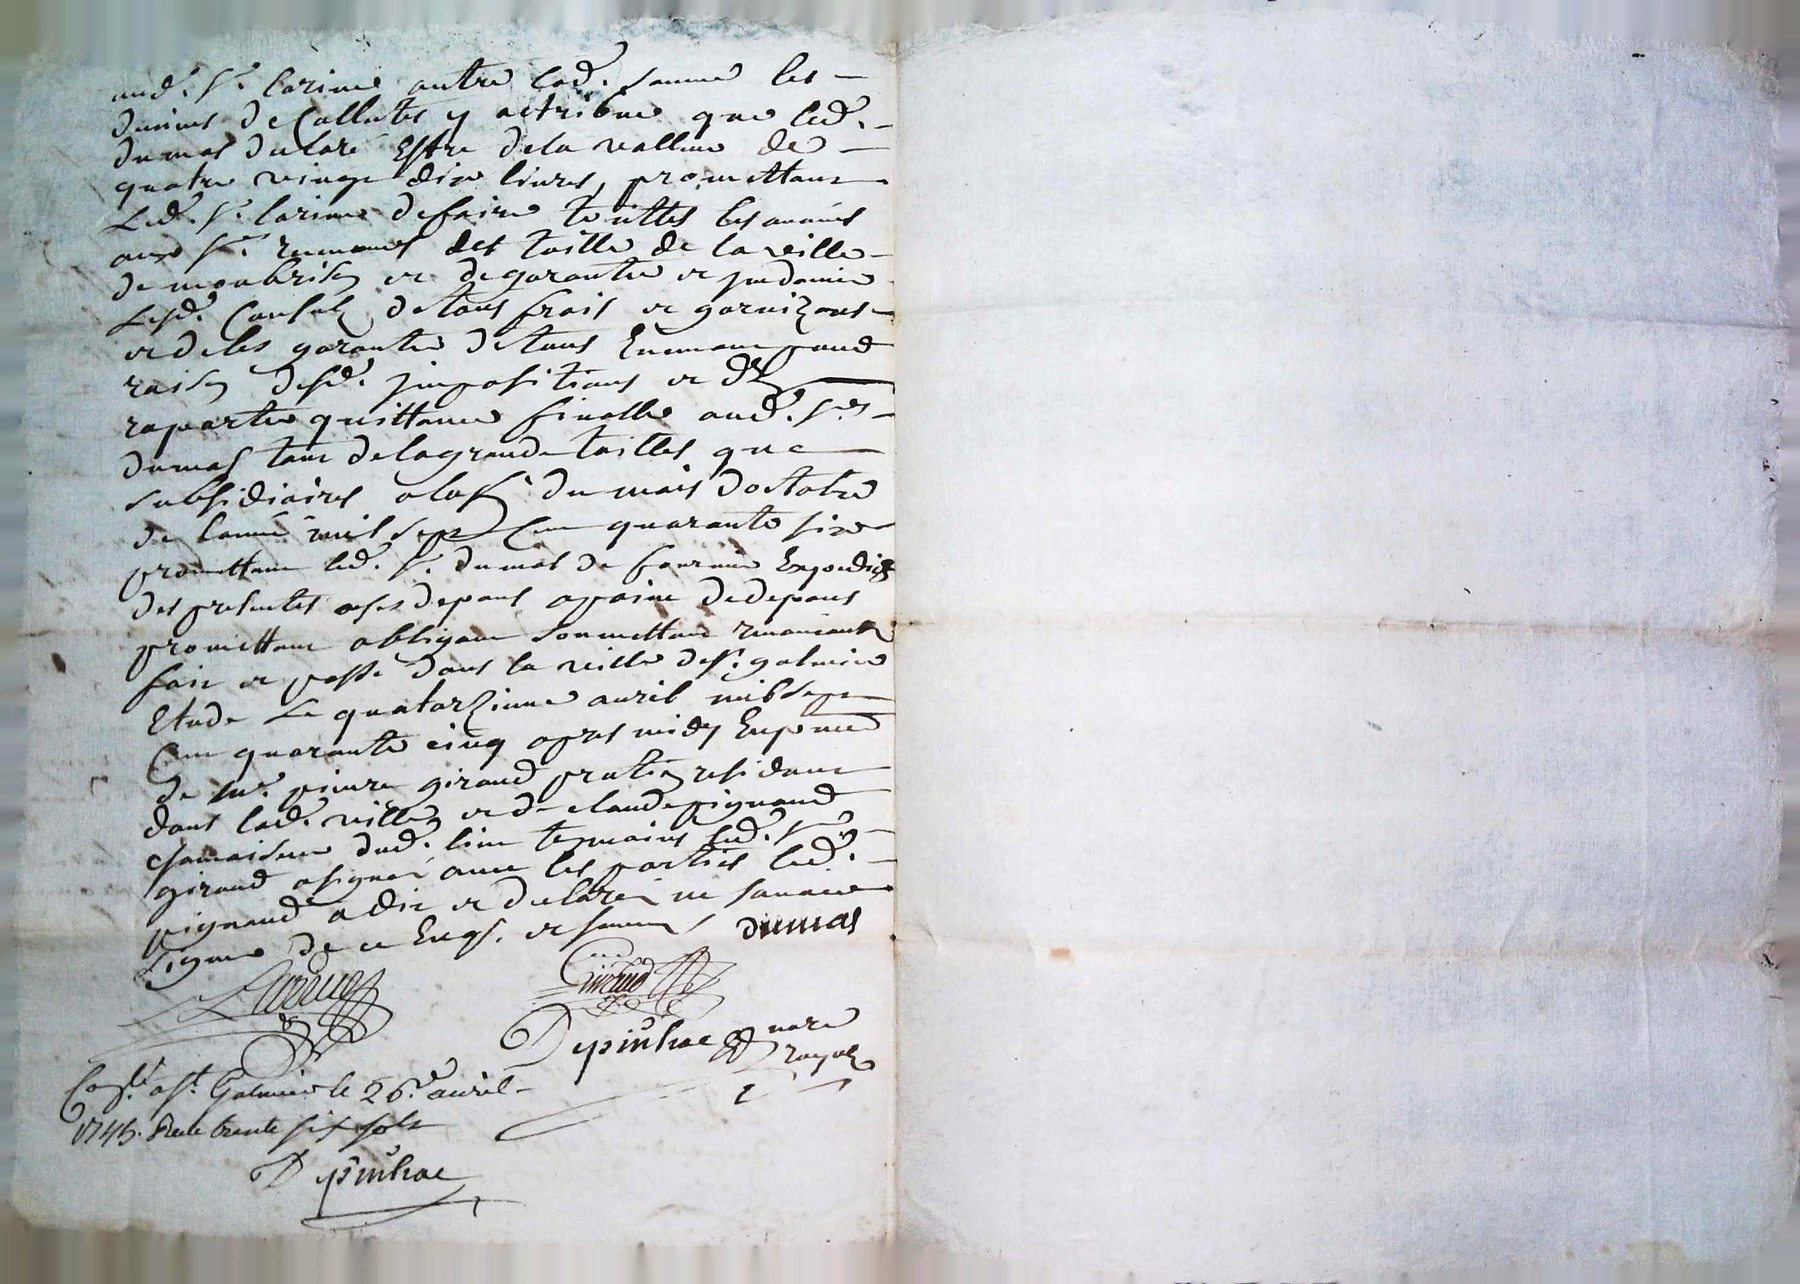 aud. Sr. Lariue outre lad. somme les
deniers de Collectes y attribue que led.
dumas declare Estre de la valleur de
quatre vingt dix livres, promettant
Led. Sr. lariue de faire touttes les avances
aux Srs. receveurs des taille de la ville
de monbrison et de garantir et jndamnizer
Lesd. Consulz de tous frais et garnizons
et de les garantir de tous Evenement pour
raison desd. jmpositions et de
raporter quittance finalle aud. Sr.
dumas tant de la grande tailles que
subsidiaires a la fin du mois doctobre
de lannée mil sept Cent quarante six
promettant led. Sr. dumas de fournir Expedion
des presentes a ses depans a paine de depans
promettant obligeant soumettant renonceant
fait et passé dans la ville de St. galmier
Etude Le quatorzieme avril mil sept
Cent quarante cinq apres midy En presence
de me. pierre giraud pratien residant
dans lad. ville et de claude pignaud
dud. lieu temoins led. Sr.
giraud a signé avec les parties led.
pignaud a dit et declaré ne sauoir
signer de ce Enqs. et sommé dumas
Lariue Giraud
Depinhac nore royal
Con.lé a St. Galmier le 26e. avril
1745. Recu trente six sols
Depinhac